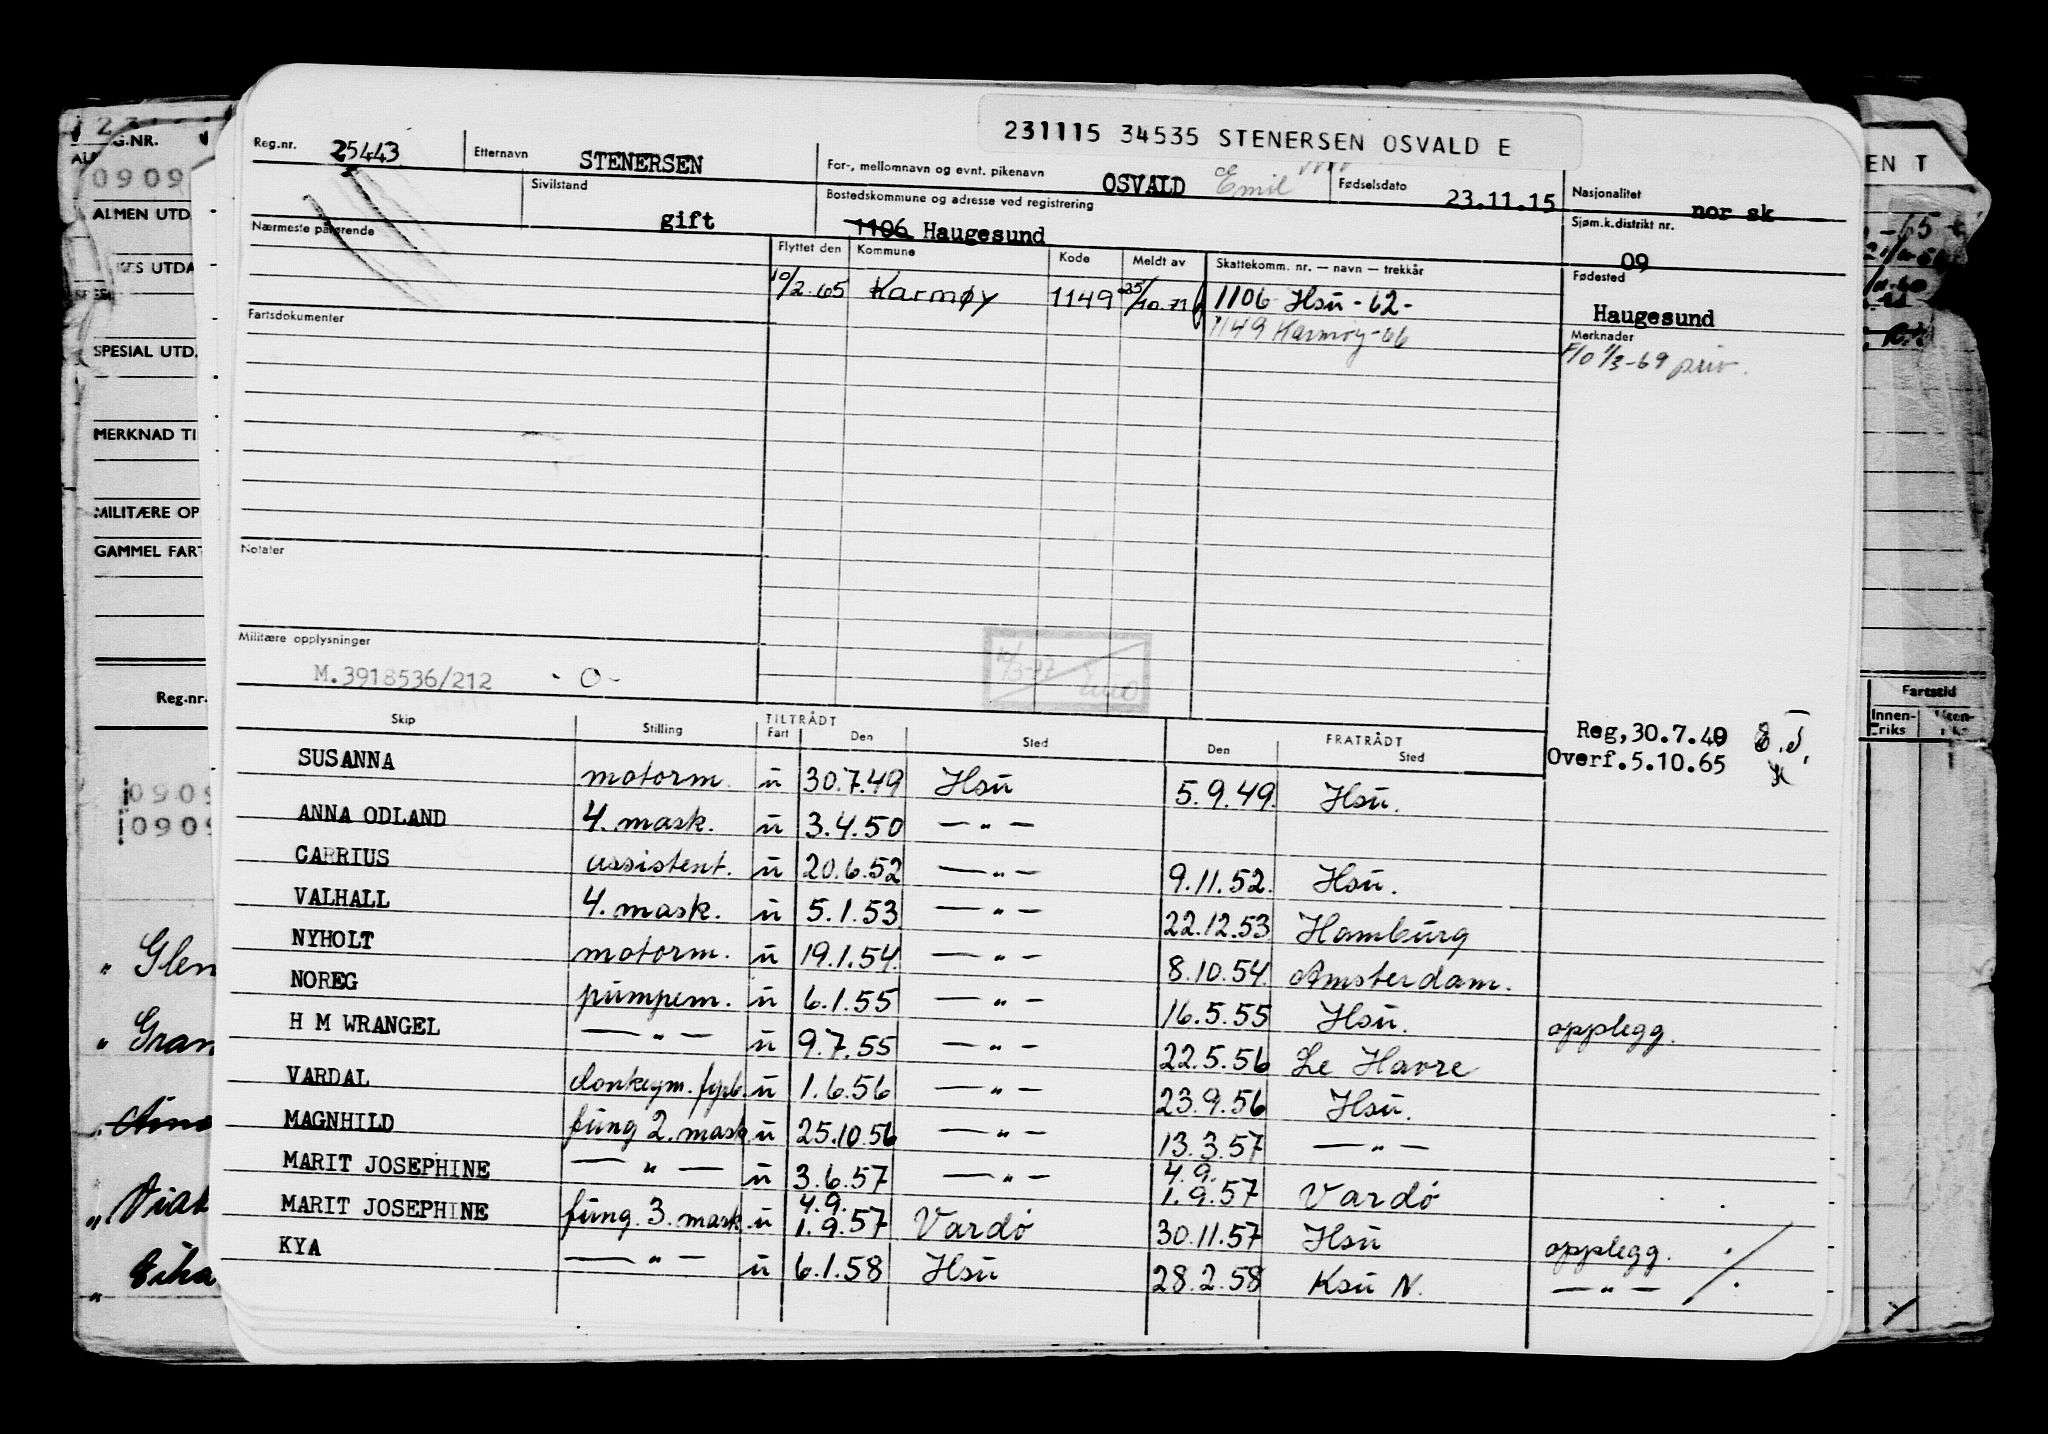 231115 34535 STENERSEN OSVALD E
Reg.nr. 25443 Etternavn STENERSEN For-, mellomnavn og evnt. pikenavn OSVALD Emil Fødselsdato 23.11.15 Nasjonalitet nor sk
Sivilstand gift Bostedskommune og adresse ved registrering 1106 Haugesund Sjøm.k.distrikt nr. 09
Nærmeste pårørende Flyttet den Kommune Kode Meldt av Skattekomm. nr. — navn — trekkår Fødested
10/2.65 Karmøy 1149 1106 Hsu -62- Haugesund
1149 Karmøy-66
Fartsdokumenter Merknader
1/3-69 priv.
Notater
Militære opplysninger
M.3918536/212 -0-
Skip Stilling TILTRÅDT Fart Den Sted FRATRÅDT Den Sted
Reg,30.7.49
Overf.5.10.65
SUSANNA motorm. u 30.7.49 Hsu 5.9.49. Hsu.
ANNA ODLAND 4. mask. u 3.4.50 — " —
CARRIUS assistent. u 20.6.52 — " — 9.11.52. Hsu.
VALHALL 4. mask. u 5.1.53 — " — 22.12.53 Hamburg
NYHOLT motorm. u 19.1.54. — " — 8.10.54. Amsterdam.
NOREG pumpem. u 6.1.55 — " — 16.5.55 Hsu. opplegg.
H M WRANGEL — " — u 9.7.55 — " — 22.5.56 Le Havre
VARDAL donkeym. fyrb. u 1.6.56 — " — 23.9.56 Hsu.
MAGNHILD fung 2. mask u 25.10.56 — " — 13.3.57 — " —
MARIT JOSEPHINE — " — u 3.6.57 — " — 4.9. 1.9.57 Vardø
MARIT JOSEPHINE fung. 3. mask u 4.9. 1.9.57 Vardø 30.11.57 Hsu opplegg.
KYA — " — u 6.1.58 Hsu 28.2.58 Ksu N. — " —
G.NR.
0909
ALMEN UTD
SPESIAL UTD.
MERKNAD TI
MILITÆRE OP
GAMMEL FART
Reg.nr.
0909
0909
" Glen
" Gran
EN T
Fartstid
Innen-
riks